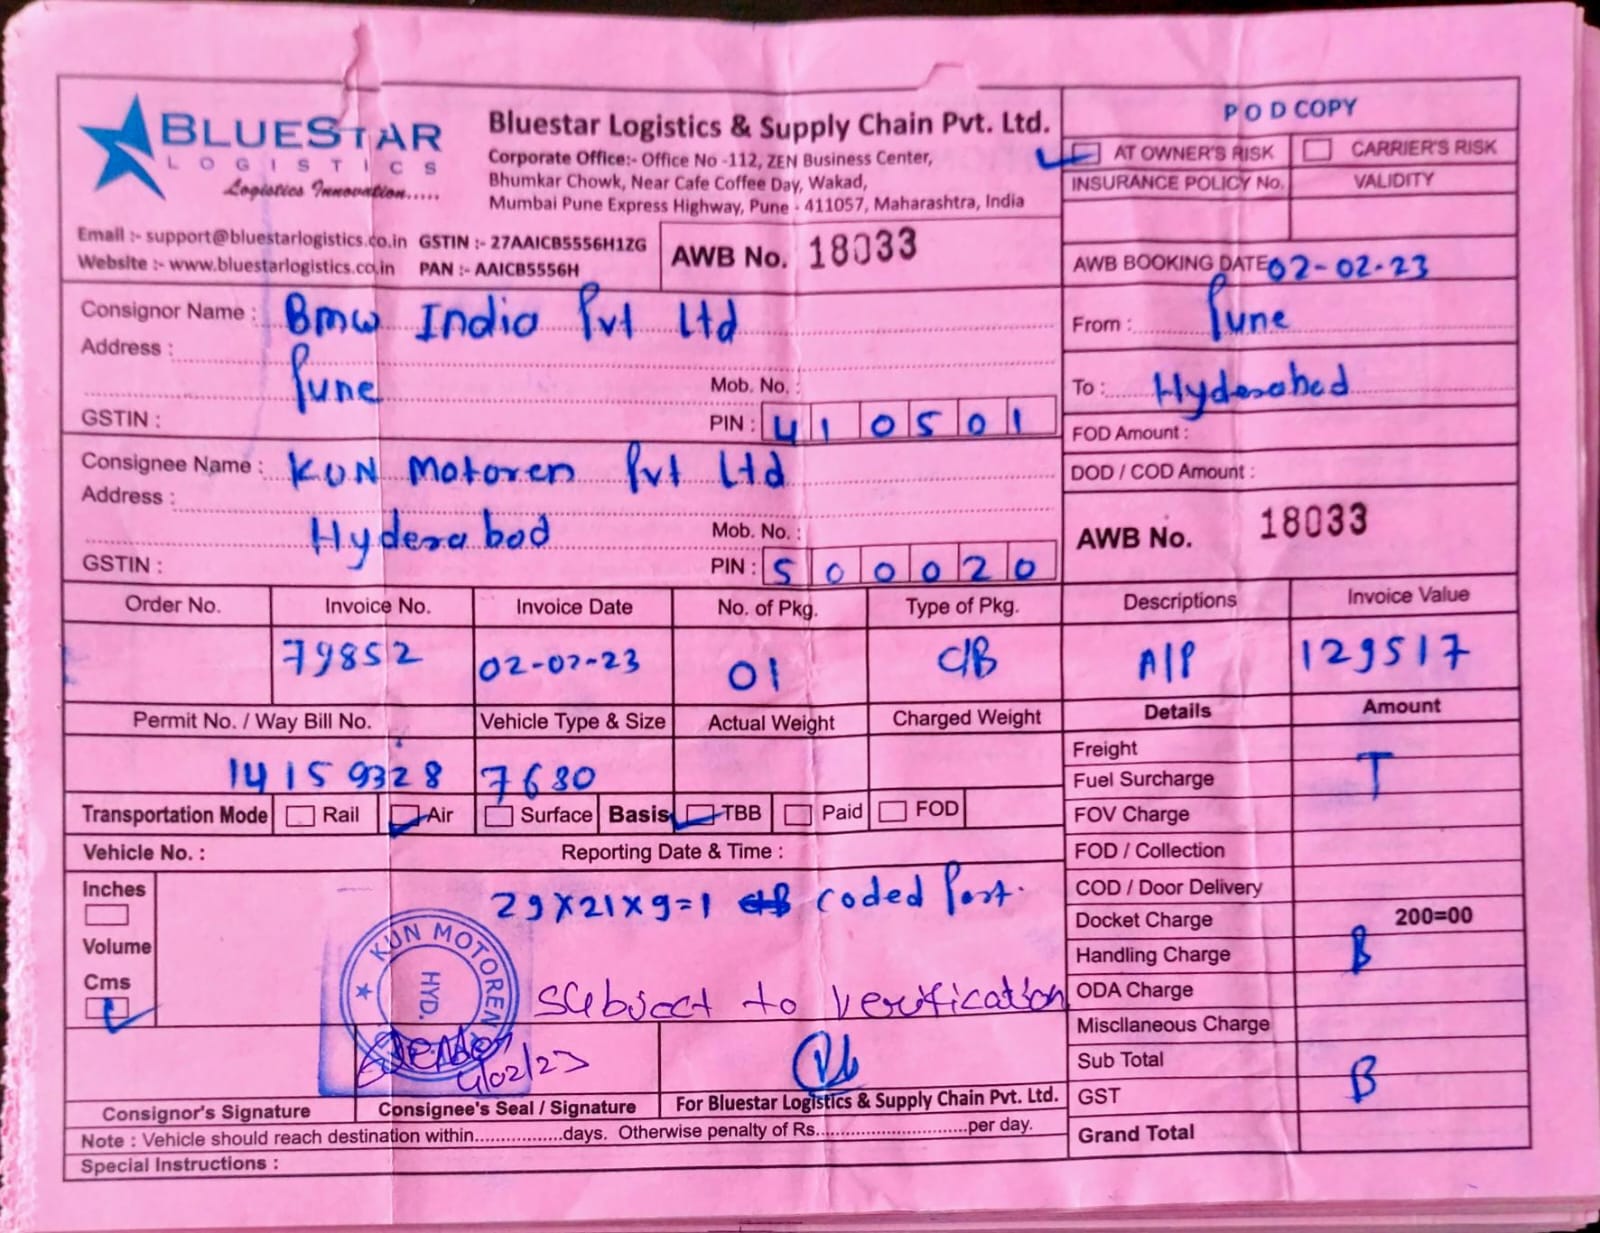 BLUESTAR
LOGISTICS
Logistics Innovation.....
Bluestar Logistics & Supply Chain Pvt. Ltd.
Corporate Office:- Office No -112, ZEN Business Center,
Bhumkar Chowk, Near Cafe Coffee Day, Wakad,
Mumbai Pune Express Highway, Pune - 411057, Maharashtra, India
Email :- support@bluestarlogistics.co.in GSTIN :- 27AAICB5556H1ZG
Website :- www.bluestarlogistics.co.in PAN :- AAICB5556H
AWB No. 18033
P O D COPY
AT OWNER'S RISK CARRIER'S RISK
INSURANCE POLICY No. VALIDITY
AWB BOOKING DATE 02-02-23
Consignor Name : Bmw India Pvt Ltd
Address :
Pune Mob. No. :
GSTIN : PIN : 410501
From : Pune
To : Hyderabad
FOD Amount :
DOD / COD Amount :
Consignee Name : KUN Motoren Pvt Ltd
Address :
Hyderabad Mob. No. :
GSTIN : PIN : 500020
AWB No. 18033
Order No. Invoice No. Invoice Date No. of Pkg. Type of Pkg. Descriptions Invoice Value
79852 02-02-23 01 C/B A/P 129517
Permit No. / Way Bill No. Vehicle Type & Size Actual Weight Charged Weight Details Amount
14159328 7680
Transportation Mode Rail Air Surface Basis TBB Paid FOD
Vehicle No. : Reporting Date & Time :
Freight
Fuel Surcharge T
FOV Charge
FOD / Collection
COD / Door Delivery
Docket Charge 200=00
Handling Charge B
ODA Charge
Miscllaneous Charge
Sub Total
GST B
Grand Total
Inches
Volume
Cms
29x21x9=1 coded Part.
KUN MOTOREN
HYD.
Subject to verification
4/02/23
Consignor's Signature Consignee's Seal / Signature For Bluestar Logistics & Supply Chain Pvt. Ltd.
Note : Vehicle should reach destination within.................days. Otherwise penalty of Rs.............................per day.
Special Instructions :